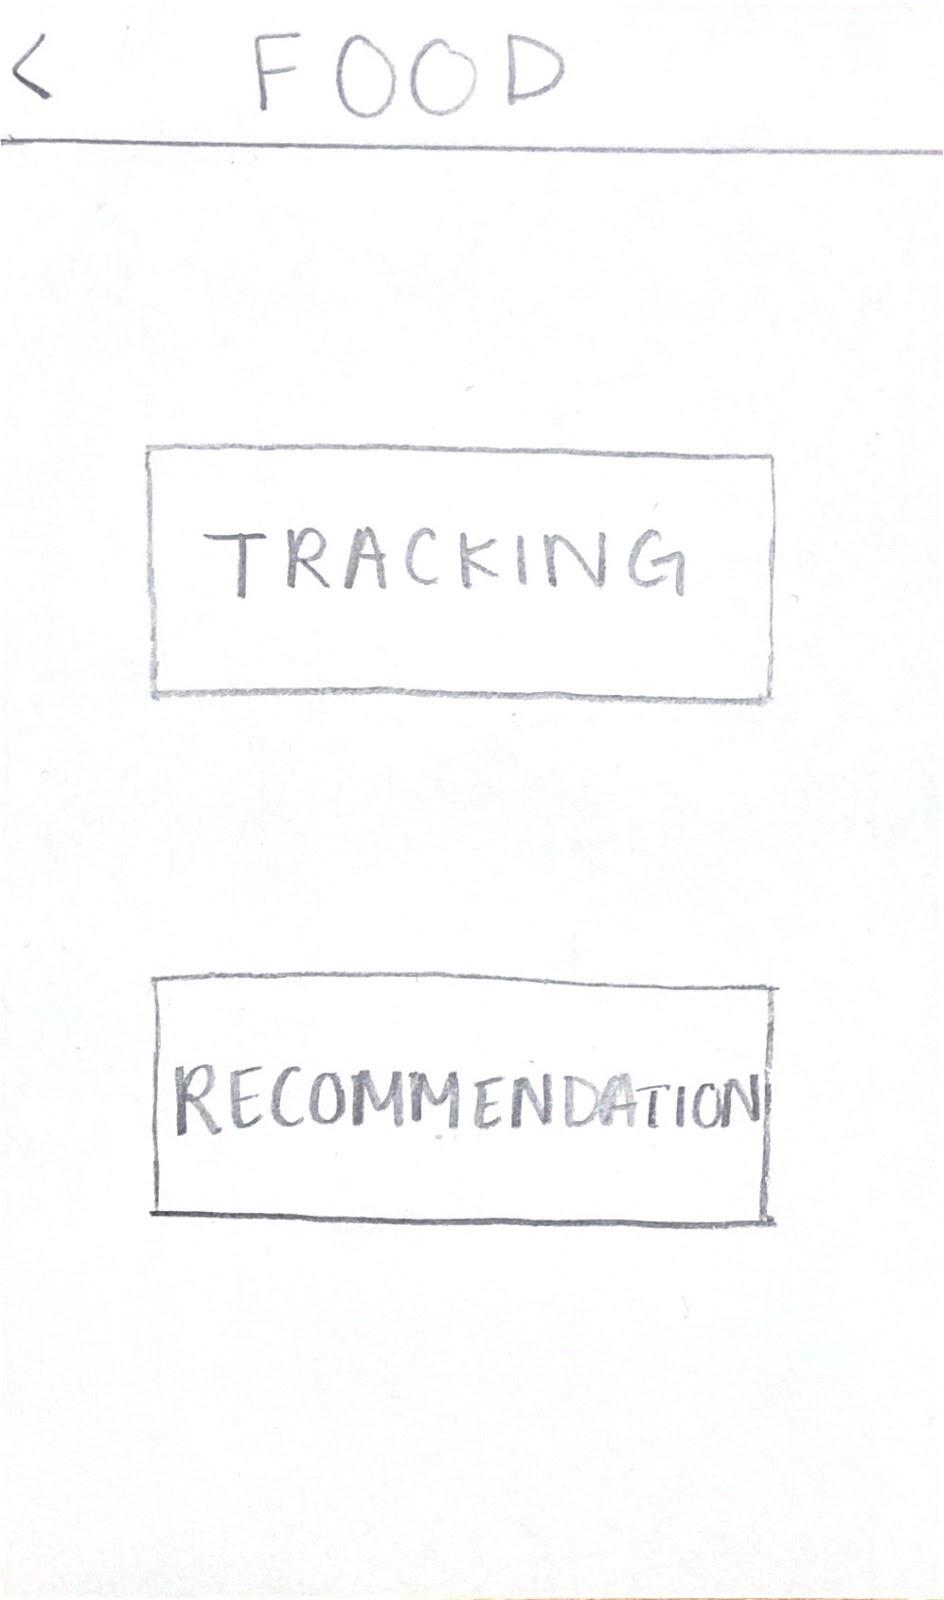 < FOOD
TRACKING
RECOMMENDATION